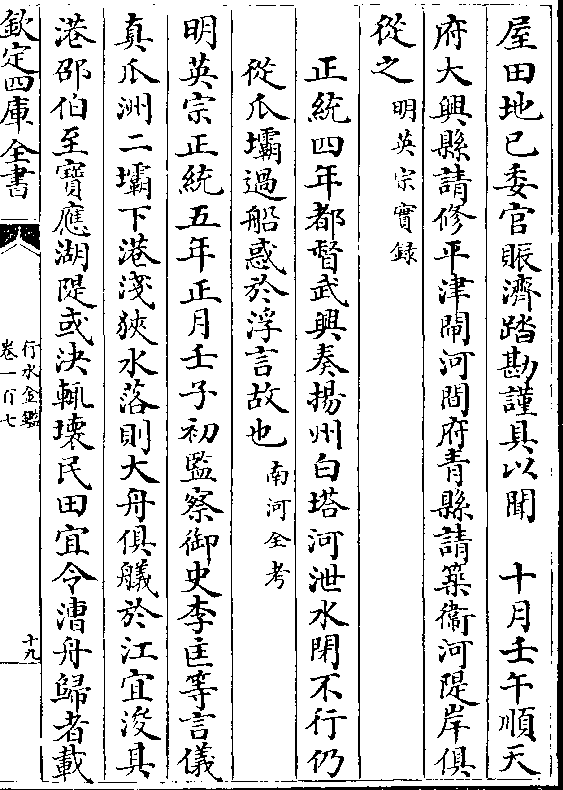 屋田地已委官賑濟踏勘謹具以聞　十月壬午順天
府大興縣請修平津閘河間府青縣請築衞河隄岸俱
從之明英宗實録
正統四年都督武興奏揚州白塔河泄水閉不行仍
從瓜壩過船惑於浮言故也南河全考
明英宗正統五年正月壬子初監察御史李匡等言儀
真瓜洲二壩下港淺狹水落則大舟俱艤於江宜浚具
港邵伯至寶應湖隄或決輒壞民田宜令漕舟歸者載
欽定四庫全書
行水金鑑
卷一百七
十九